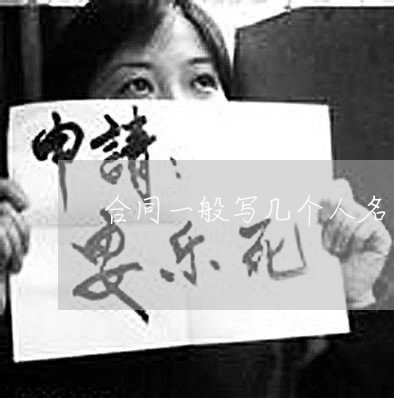 申請：
合同一般写几个人名
安乐死